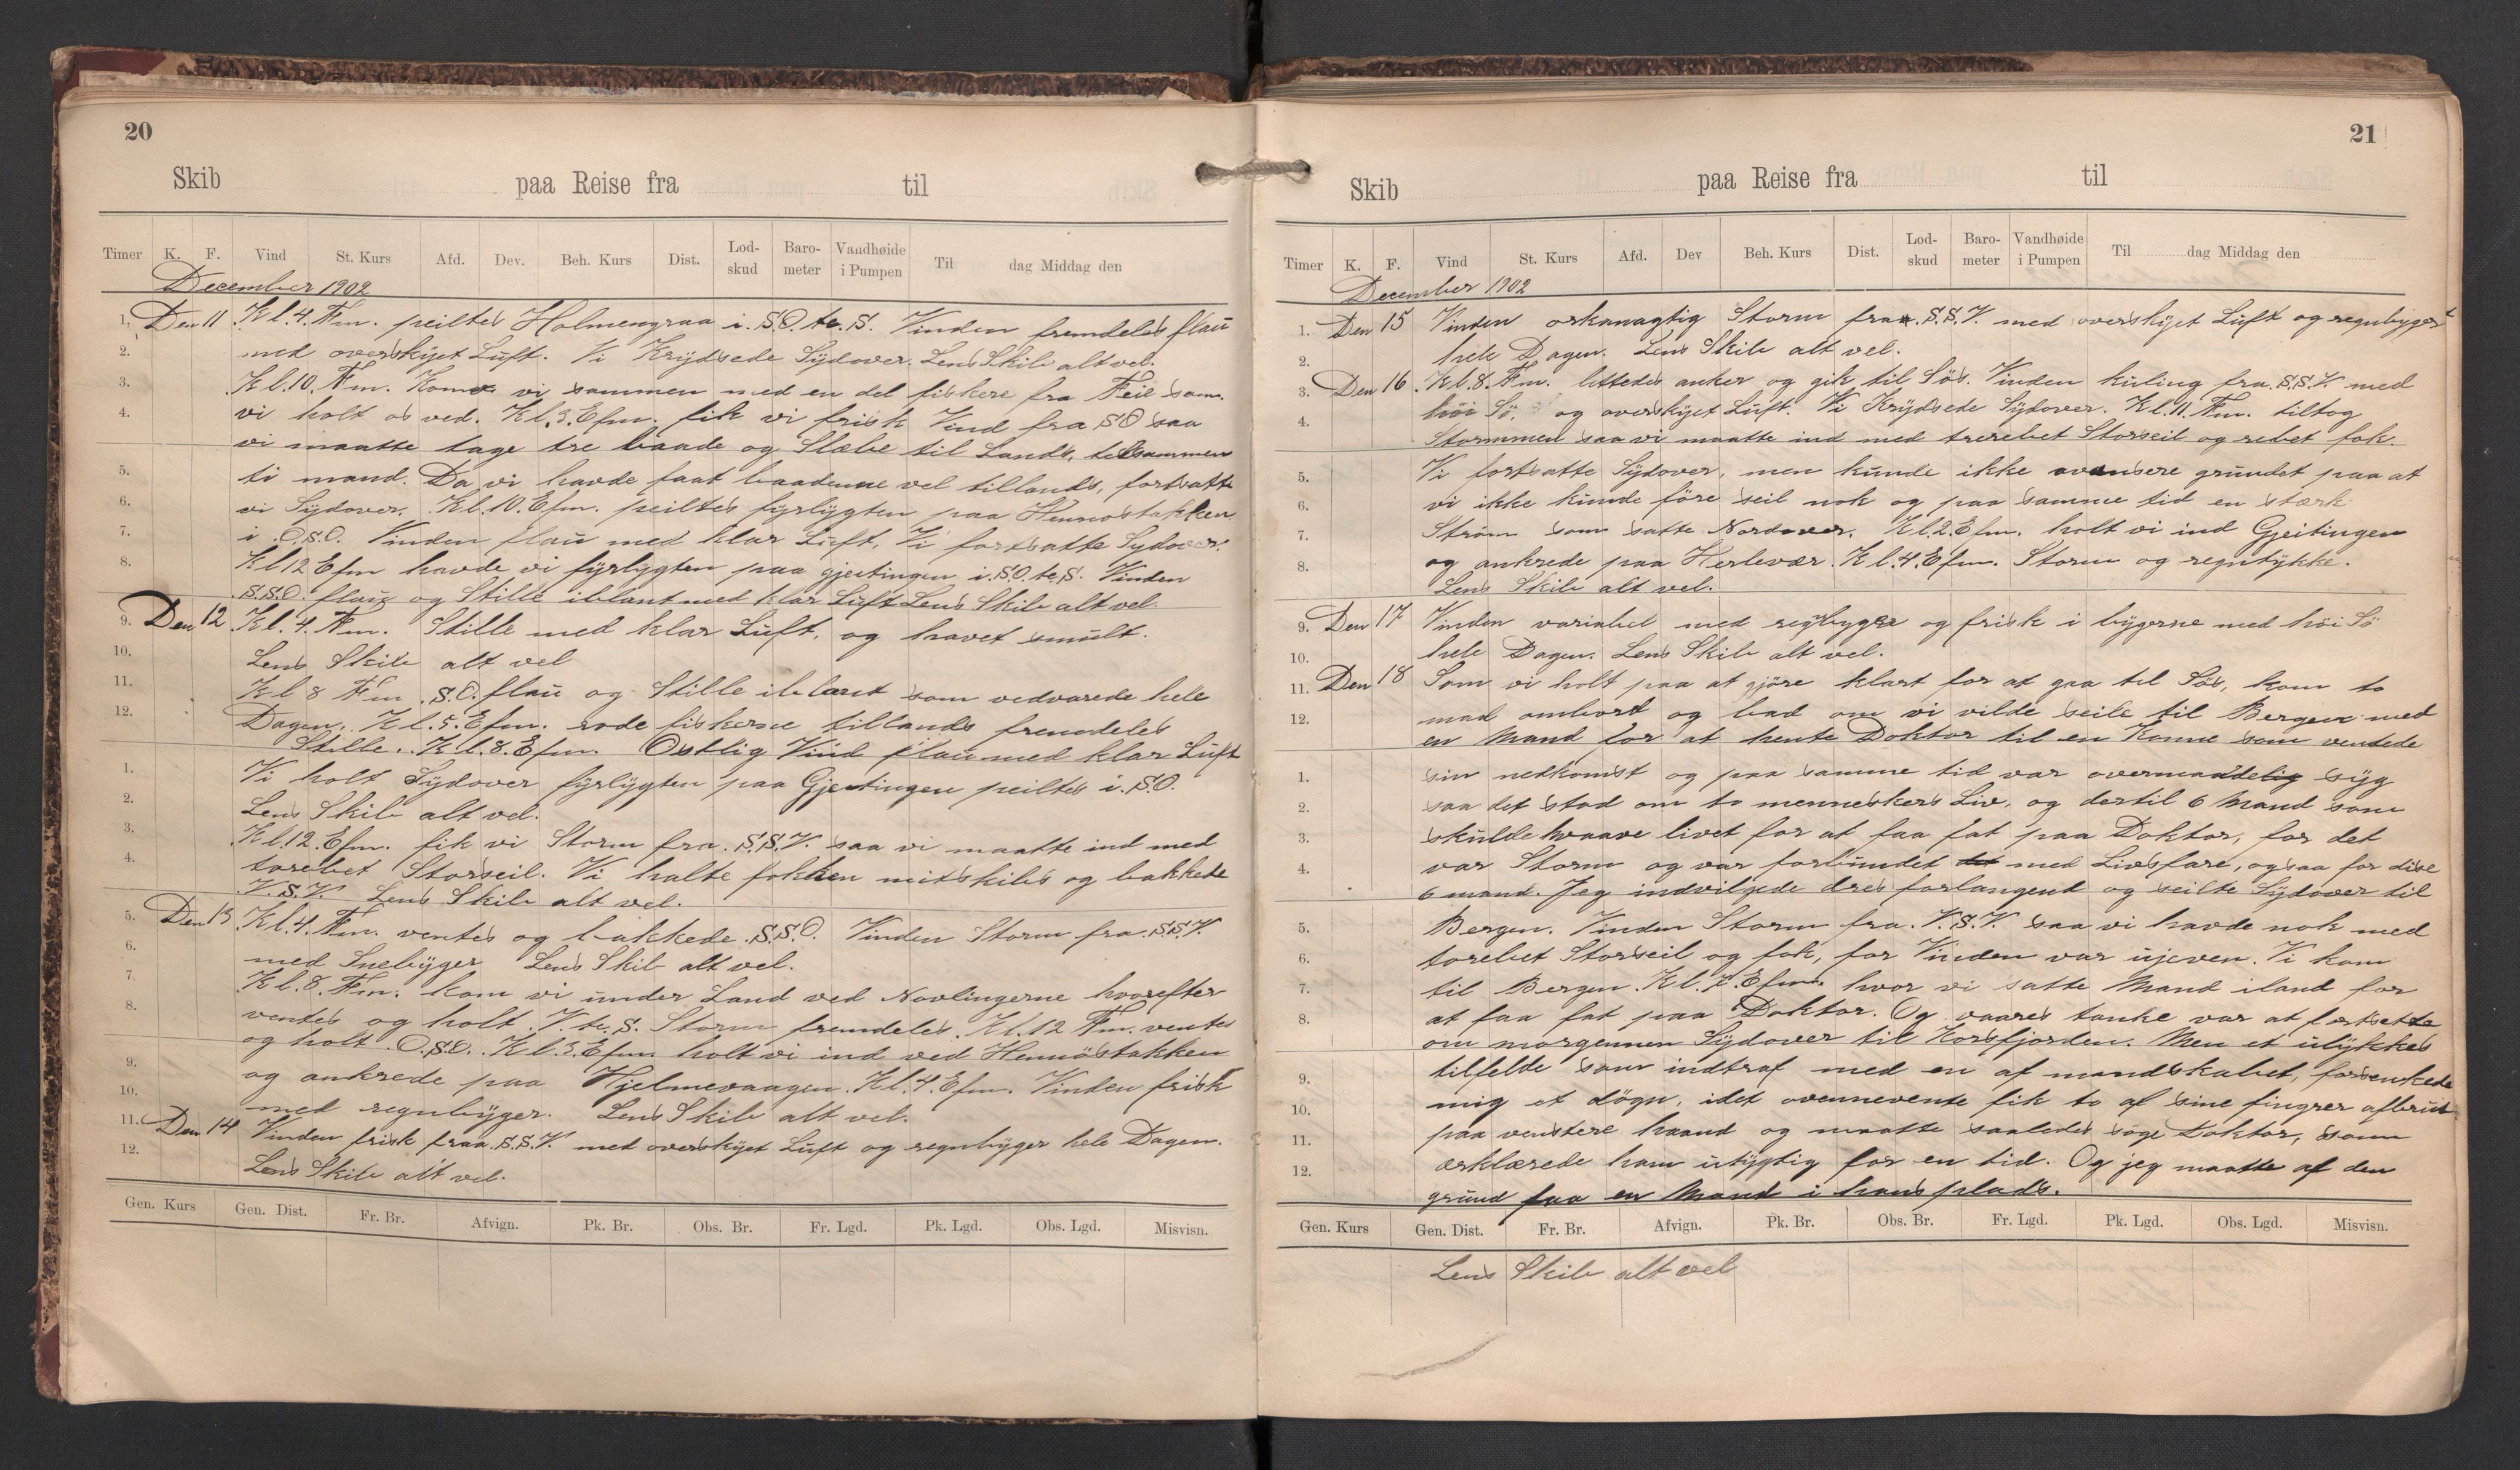 20
Skib paa Reise fra til
Timer K. F. Vind St. Kurs Afd. Dev. Beh. Kurs Dist. Lod-skud Baro-meter Vandhøide i Pumpen Til dag Middag den
December 1902
1. Den 11 Kl. 4. Fm. peiltes Holmengraa i. S.O. te. S. Vinden fremdeles flau
2. med overskyet Luft. Vi Krydsede Sydover. Lens Skib alt vel.
3. Kl. 10. Fm. Kom vi sammen med en del fiskere fra Feie som
4. vi holt os ved. Kl. 3. Efm. fik vi frisk Vind fra SO saa
vi maatte tage tre baade og Slæbe til Lands, tilsammen
5. ti mand. Da vi havde faat baadenne vel tillands, fortsatte
6. vi Sydover. Kl. 10. Efm. peiltes fyrlygten paa Hennøstakken
7. i .O.S.O. Vinden flau med klar Luft. Vi fortsatte Sydover.
8. Kl 12 Efm havde vi fyrlygten paa gjeitingen i. S.O. te. S. Vinden
S.S.O. flau og Stille iblant med klar Luft Lens Skib alt vel.
9. Den 12 Kl. 4. Fm. Stille med klar Luft, og havet smult.
10. Lens Skib alt vel
11. Kl 8 Fm S.O. flau og Stille iblant som vedvarede hele
12. Dagen. Kl. 5. Efm. rode fiskerne tillands fremdeles
Stille. Kl. 8. Efm. Ostlig Vind flau med klar Luft
1. Vi holt Sydover fyrlygten paa Gjeitingen peiltes i. S.O.
2. Lens Skib alt vel.
3. Kl. 12. Efm. fik vi Storm fra. S.S.V. saa vi maatte ind med
4. torebet Storseil. Vi halte fokken mitskibs og bakkede
V.S.V. Lens Skib alt vel.
5. Den 13 Kl. 4. Fm. ventes og bakkede .S.S.O. Vinden Storm fra. S.S.V.
6. med Snebyger Lens Skib alt vel.
7. Kl. 8. Fm. kom vi under Land ved Novlingerne hvorefter
8. ventes og holt .V. te. S. Storm fremdeles. Kl. 12 Fm. ventes
og holt .O.S.O. Kl. 3. Efm holt vi ind ved Hennöstakken
9. og ankrede paa Hjelmevaagen. Kl. 4. Efm. Vinden frisk
10. med regnbyger. Lens Skib alt vel.
11. Den 14 Vinden frisk fraa. S.S.V. med overskyet Luft og regnbyger hele Dagen.
12. Lens Skib alt vel.
Gen. Kurs Gen. Dist. Fr. Br. Afvign. Pk. Br. Obs. Br. Fr. Lgd. Pk. Lgd. Obs. Lgd. Misvisn.
21
Skib paa Reise fra til
Timer K. F. Vind St. Kurs Afd. Dev Beh. Kurs Dist. Lod-skud Baro-meter Vandhøide i Pumpen Til dag Middag den
December 1902
1. Den 15 Vinden orkanagtig Storm fra. S.S.V. med overskyet Luft og regnbyger
2. hele Dagen. Lens Skib alt vel.
3. Den 16 Kl. 8. Fm. lettedes anker og gik til Søs. Vinden kuling fra. S.S.V. med
4. höi Sö. og overskyet Luft. Vi Krydsede Sydover. Kl. 11. Fm. tiltog
Stormmen saa vi maatte ind med trerebet Storseil og rebet fok.
5. Vi fortsatte Sydover, men kunde ikke avansere grundet paa at
6. vi ikke kunde före seil nok og paa samme tid en stærk
7. Ström som satte Nordover. Kl. 2. Efm. holt vi ind Gjeitingen
8. og ankrede paa Herlevær. Kl. 4. Efm. Storm og regntykke.
Lens Skib alt vel.
9. Den 17 Vinden variabel med regnbyger og frisk i bygerne med höi Sö
10. hele Dagen. Lens Skib alt vel.
11. Den 18 Som vi holt paa at gjöre klart for at gaa til Søs, kom to
12. mad ombord og bad om vi vilde seile til Bergen med
en Mand for at hente Doktor til en Konne som ventede
1. sin nedkomst og paa samme tid var overmaadelig syg
2. saa det stod om to menneskers Liv, og dertil 6 Mand som
3. skulde hvaave livet for at faa fat paa Doktor, for det
4. var Storm og var forbundet med Livsfare, ogsaa for dise
6 mand. Jeg indvilgede dres forlangend og seilte Sydover til
5. Bergen. Vinden Storm fra. V.S.V. saa vi havde nok med
6. torebet Storseil og fok, for Vinden var ujeven. Vi kom
7. til Bergen. Kl. 7. Efm. hvor vi satte Mand iland for
8. at faa fat paa Doktor. Og vaares tanke var at fortsette
om morgennen Sydover til Korsfjorden. Men et ulykkes
9. tilfelde som indtraf med en af mandskabet, forsenkede
10. mig et dögn, idet ovennevente fik to af sine fingrer afbrut
11. paa venstere haand og maatte saaledes søge Doktor, som
12. ærklærede ham utygtig for en tid. Og jeg maatte af den
grund faa en Mand i hans plads.
Gen. Kurs Gen. Dist. Fr. Br. Afvign. Pk. Br. Obs. Br. Fr. Lgd. Pk. Lgd. Obs. Lgd. Misvisn.
Lens Skib alt vel